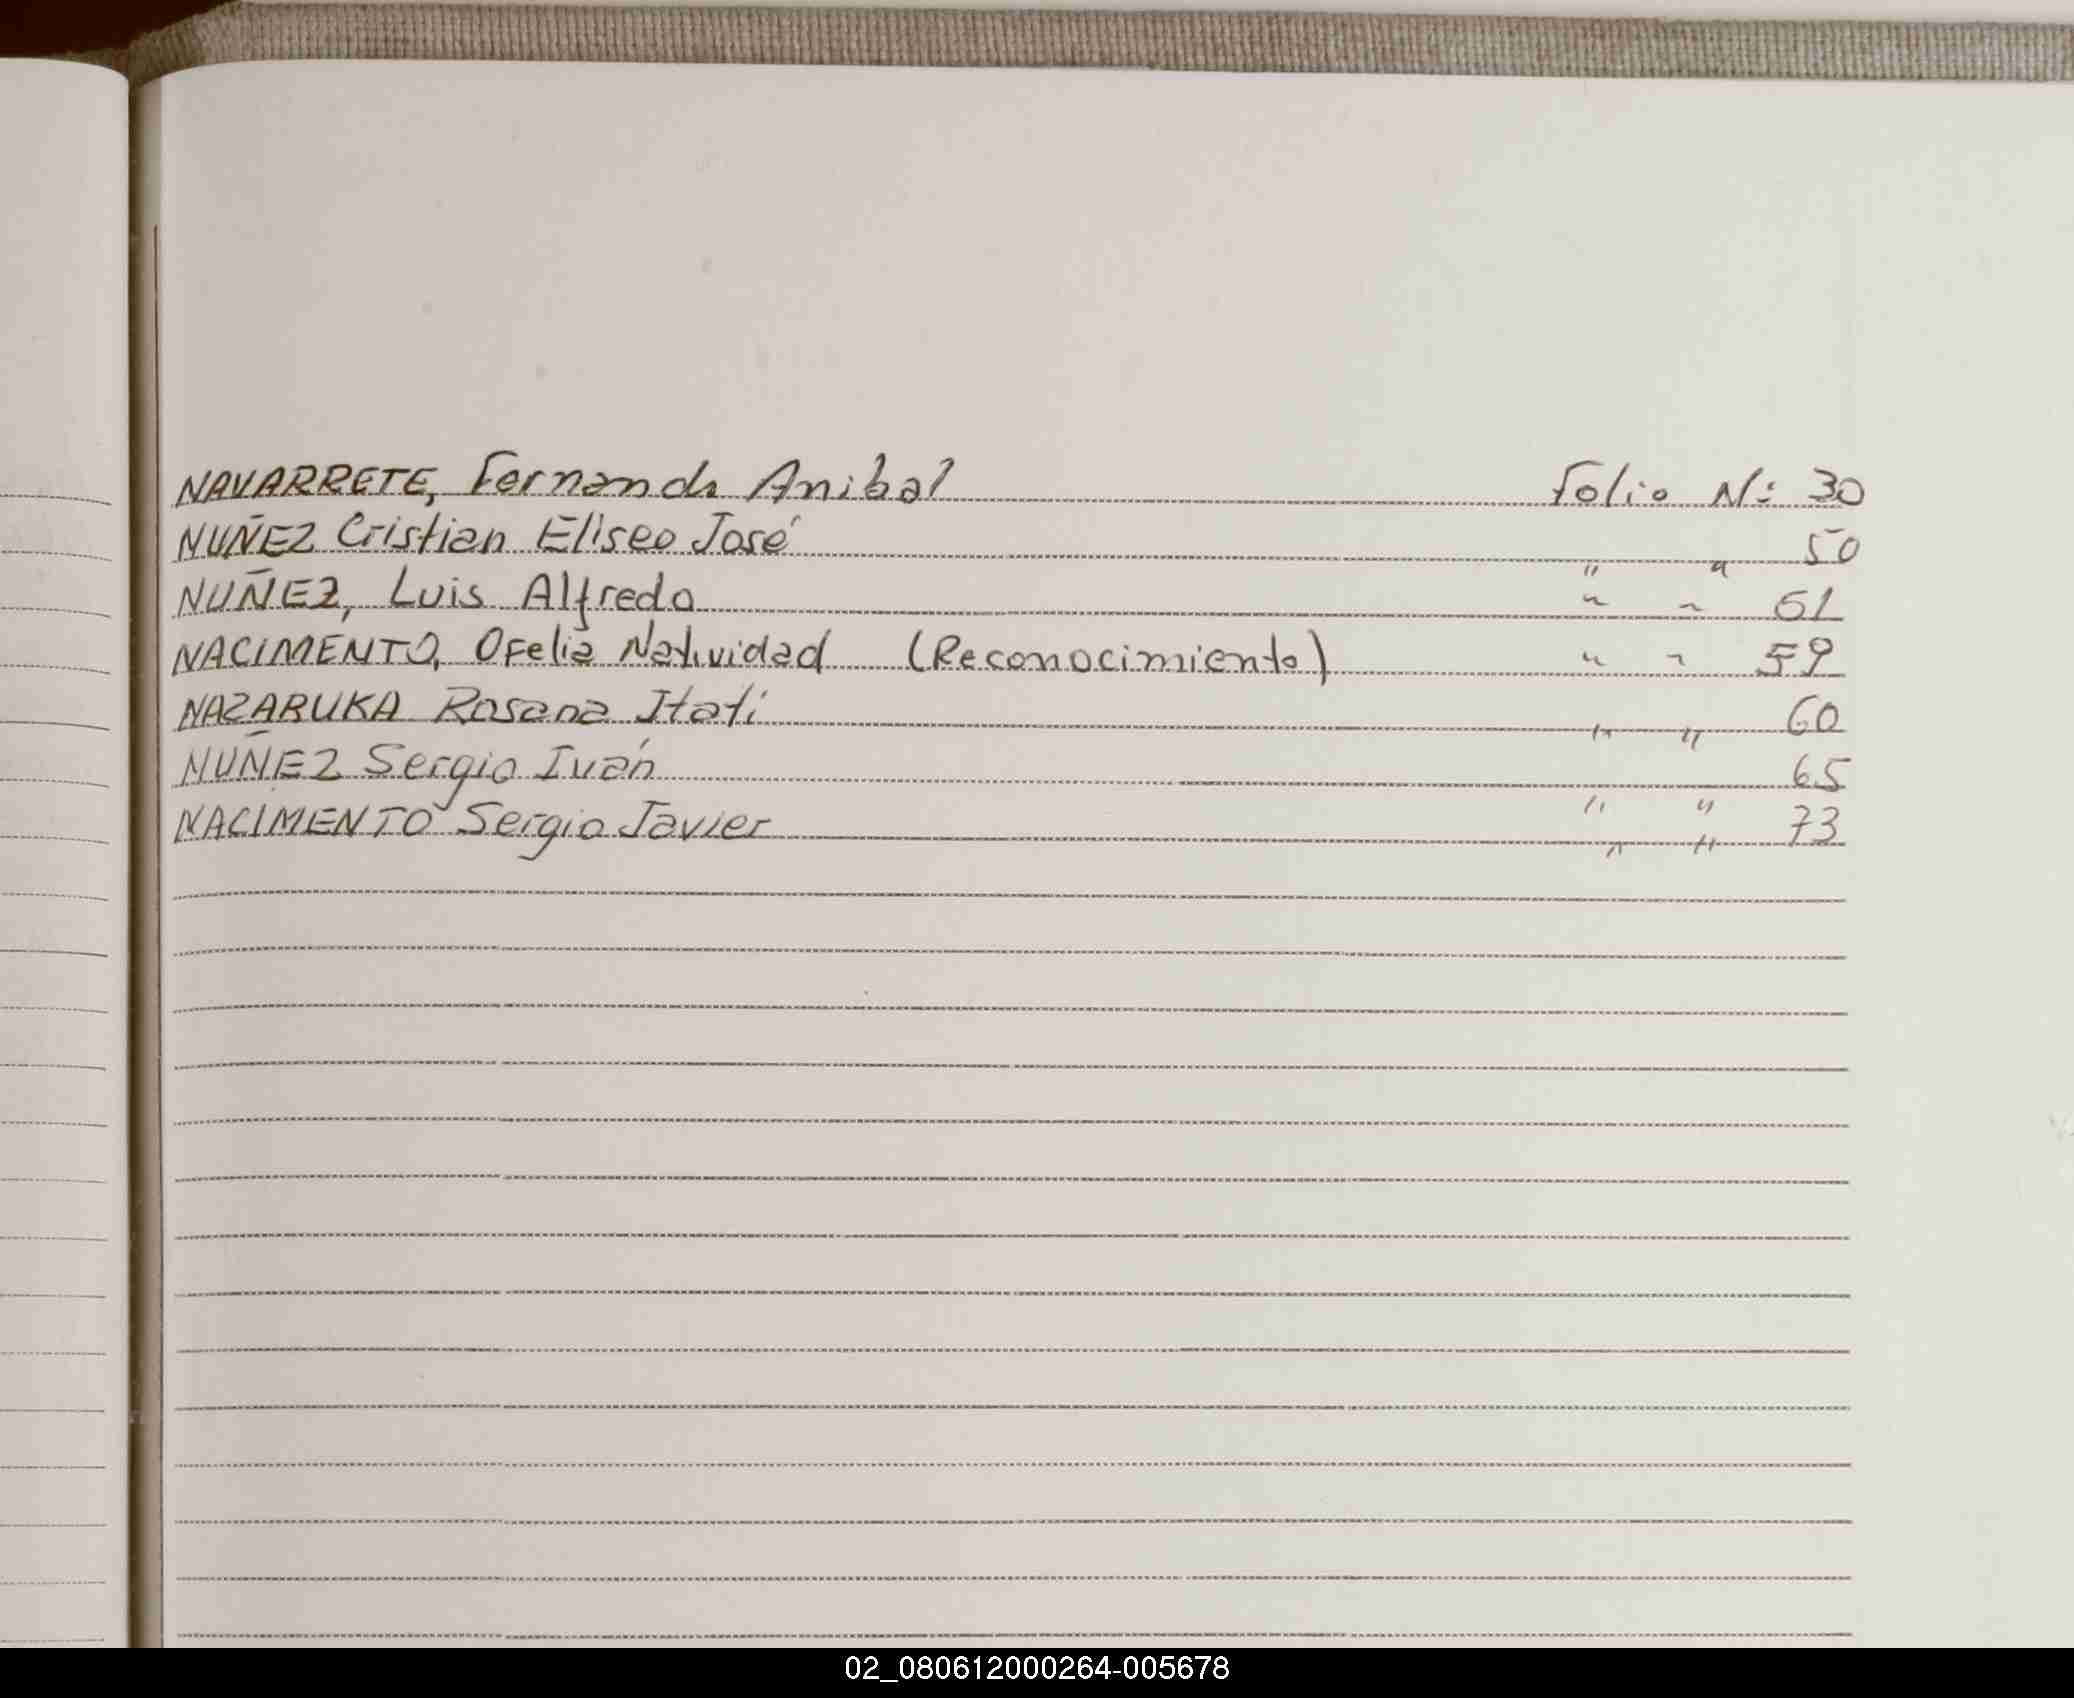 NAVARRETE, Fernando Anibal Folio Nº 30
NUÑEZ Cristian Eliseo José " " 50
NUÑEZ, Luis Alfredo " " 51
NACIMENTO, Ofelia Natividad (Reconocimiento) " " 59
NAZARUKA Rosana Itatí " " 60
NUÑEZ Sergio Iván " " 65
NACIMENTO Sergio Javier " " 73
02_080612000264-005678